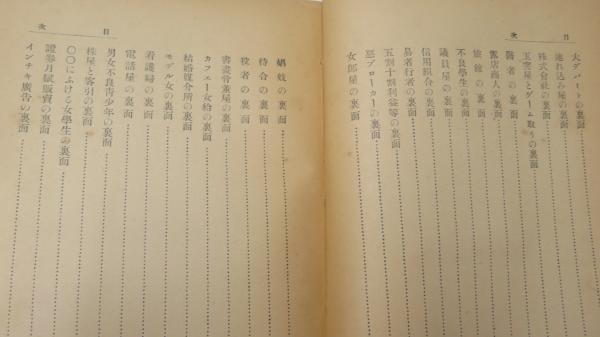 目次
大デパートの裏面
連れ込み屋の裏面
株式會社の裏面
玉突屋とゲーム取りの裏面
醫者の裏面
露店商人の裏面
旅館の裏面
不良學生の裏面
議員屋の裏面
信用組合の裏面
易者行者の裏面
五割十割利益等の裏面
惡ブローカーの裏面
女郎屋の裏面
目次
娼妓の裏面
待合の裏面
役者の裏面
書畫骨董屋の裏面
カフェー女給の裏面
結婚媒介所の裏面
モデル女の裏面
看護婦の裏面
電話屋の裏面
男女不良靑少年の裏面
株屋と客引の裏面
〇〇にふける女學生の裏面
證券月賦販賣の裏面
インチキ廣吿の裏面